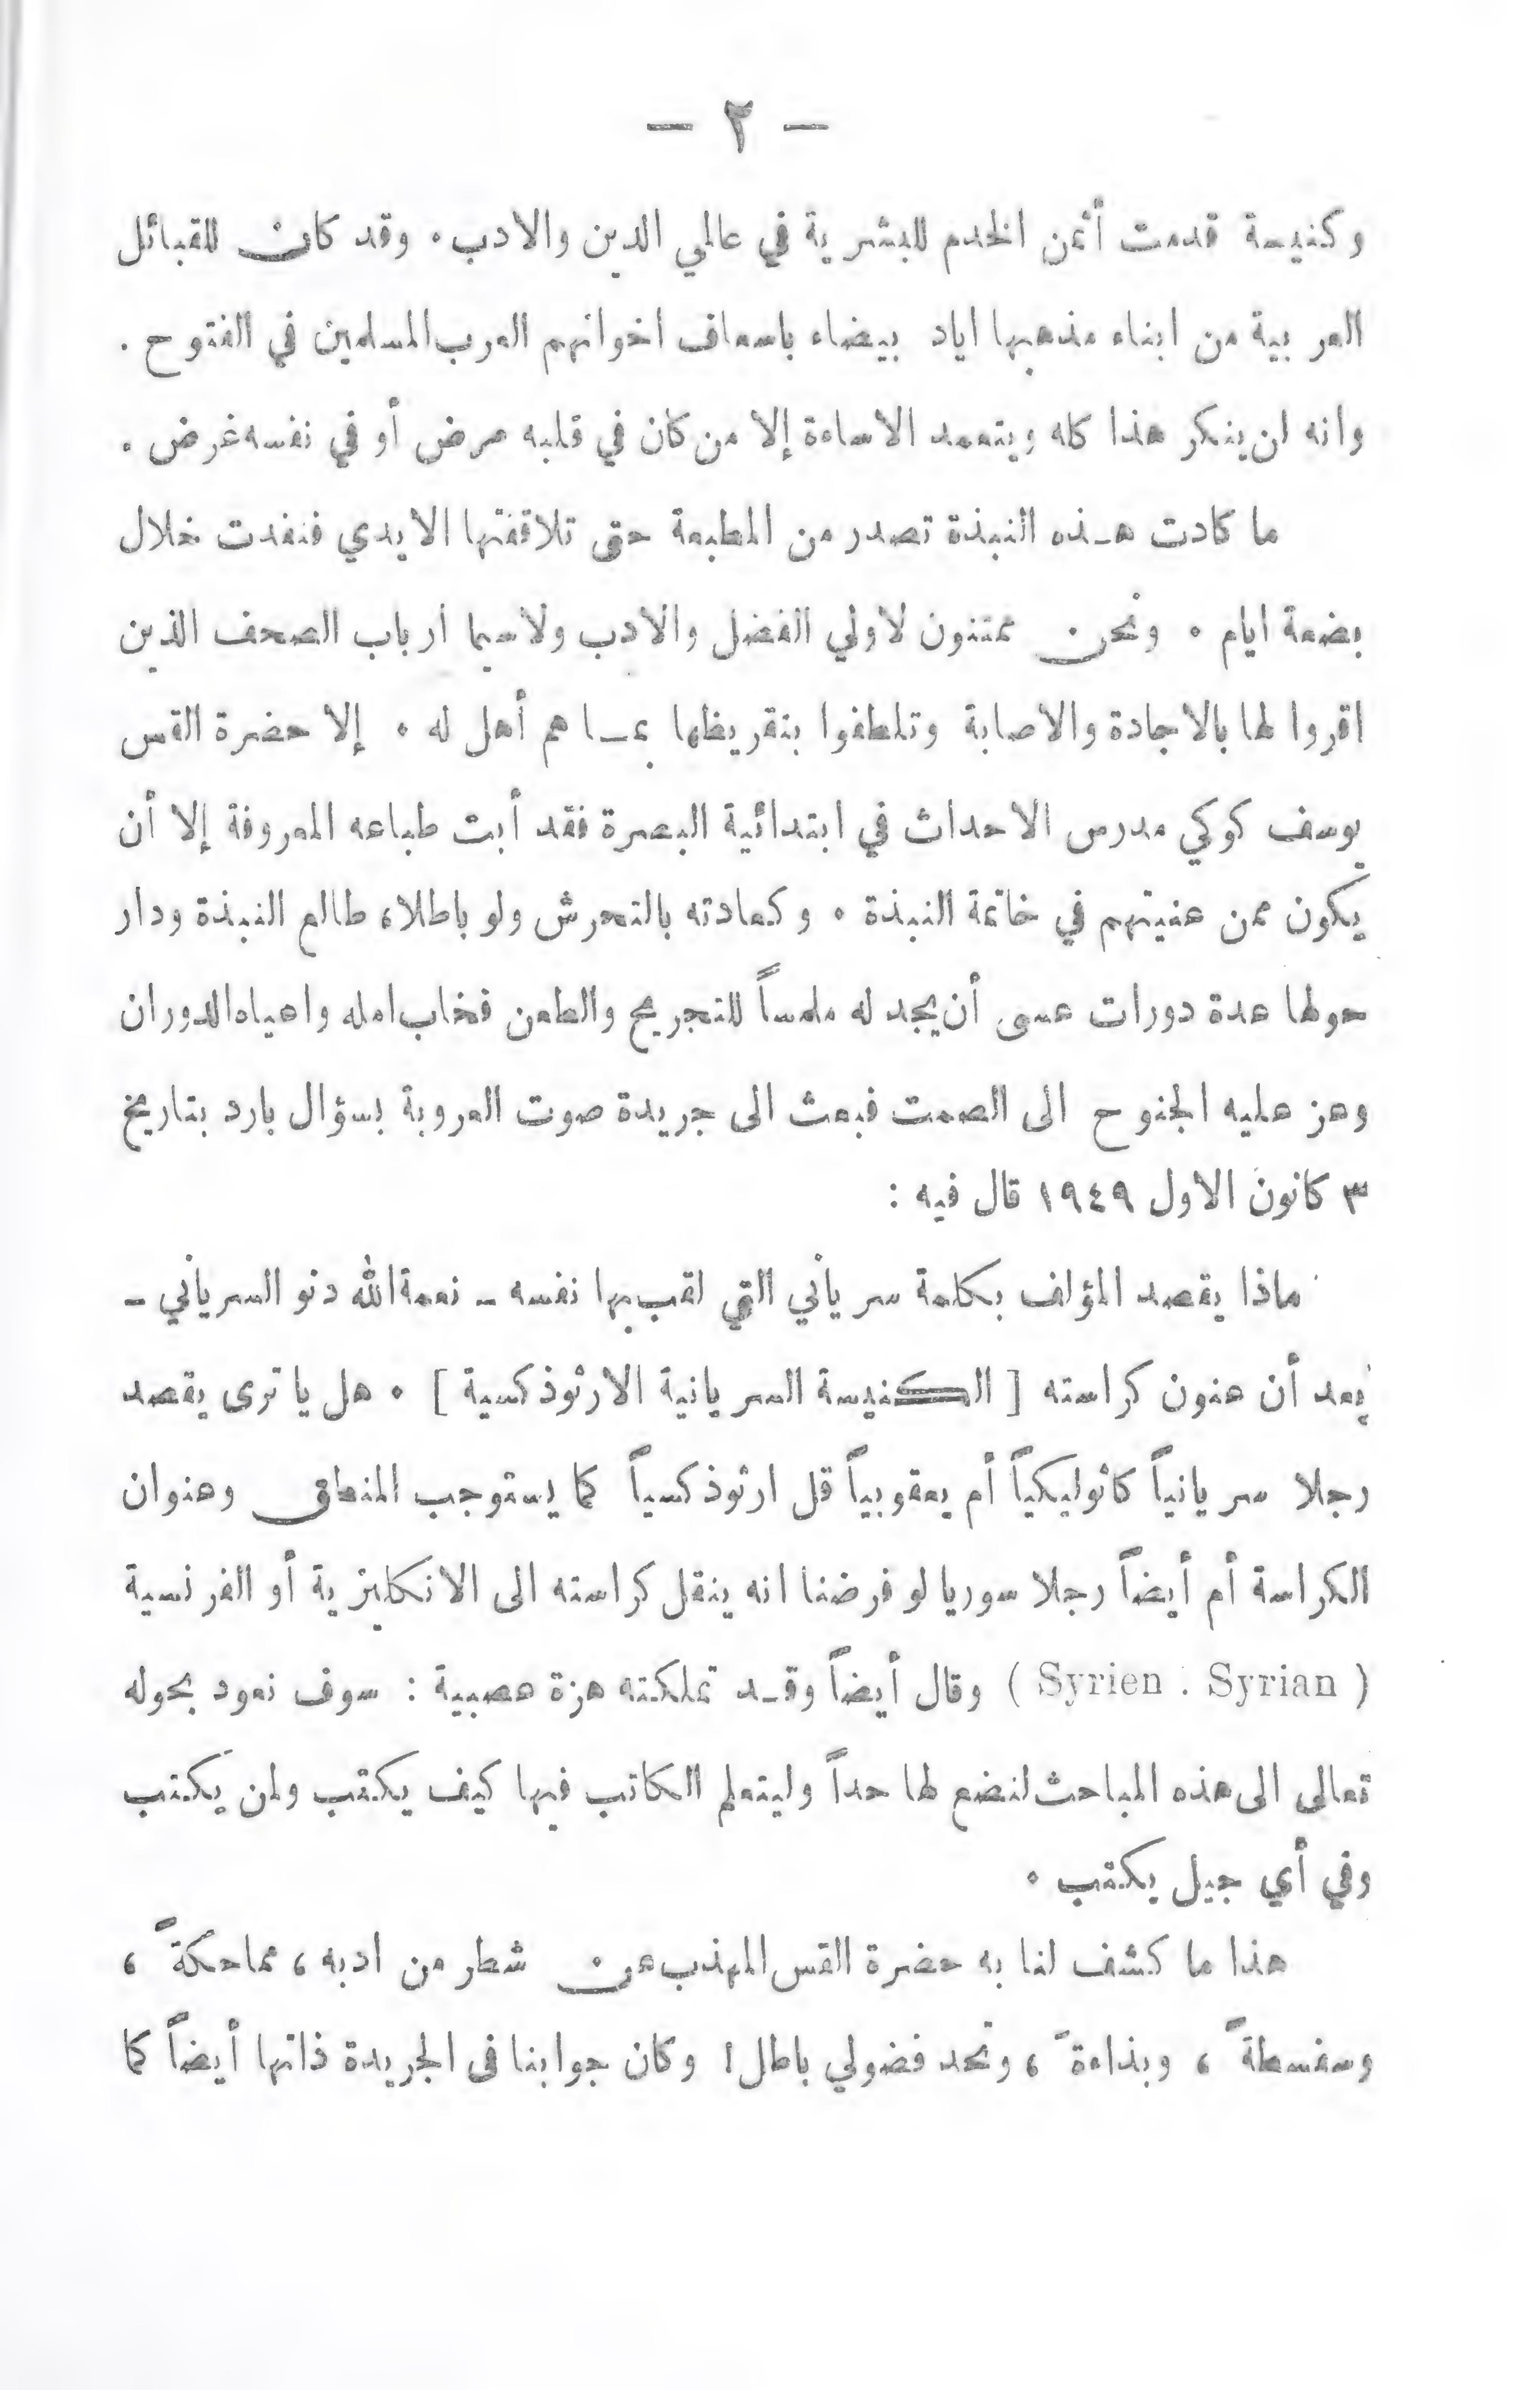 — ٢ —
وكنيسة قدمت أثمن الخدم للبشرية في عالمي الدين والادب . وقد كان للقبائل
العربية من ابناء مذهبها اياد بيضاء باسعاف اخوانهم العرب المسلمين في الفتوح .
وانه لن ينكر هذا كله ويتعمد الاساءة إلا من كان في قلبه مرض أو في نفسه غرض .
ما كادت هـذه النبذة تصدر من المطبعة حتى تلاقفتها الايدي فنفدت خلال
بضعة ايام . ونحن ممتنون لاولي الفضل والادب ولاسيما ارباب الصحف الذين
اقروا لها بالاجادة والاصابة وتلطفوا بتقريظها بمـا هم أهل له . إلا حضرة القس
يوسف كوكي مدرس الاحداث في ابتدائية البصرة فقد أبت طباعه المعروفة إلا أن
يكون ممن عنيتهم في خاتمة النبذة . وكعادته بالتحرش ولو باطلاء طالع النبذة ودار
حولها عدة دورات عسى أن يجد له ملمساً للتجريح والطعن فخاب امله واعياه الدوران
وعز عليه الجنوح الى الصمت فبعث الى جريدة صوت العروبة بسؤال بارد بتاريخ
٣ كانون الاول ١٩٤٩ قال فيه :
ماذا يقصد المؤلف بكلمة سرياني التي لقب بها نفسه - نعمة الله دنو السرياني -
بعد أن عنون كراسته [ الكنيسة السريانية الارثوذكسية ] . هل يا ترى يقصد
رجلا سريانياً كاثوليكياً أم يعقوبياً قل ارثوذكسياً كما يستوجب المنطق وعنوان
الكراسة أم أيضاً رجلا سوريا لو فرضنا انه ينقل كراسته الى الانكليزية أو الفرنسية
( Syrien . Syrian ) وقال أيضاً وقـد تملكته هزة عصبية : سوف نعود بحوله
تعالى الى هذه المباحث لنضع لها حداً وليتعلم الكاتب فيها كيف يكتب ولمن يكتب
وفي أي جيل يكتب .
هذا ما كشف لنا به حضرة القس المهذب عن شطر من ادبه ، مماحكةً ،
وسفسطةً ، وبذاءةً ، وتحد فضولي باطل ! وكان جوابنا فى الجريدة ذاتها أيضاً كما